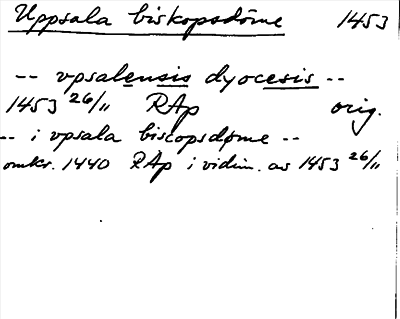 Uppsala biskopsdöme 1453
-- vpsalensis dyocesis --
1453 26/11 RAp orig.
-- i vpsala biscopsdøme --
omkr. 1440 RAp i vidim. av 1453 26/11